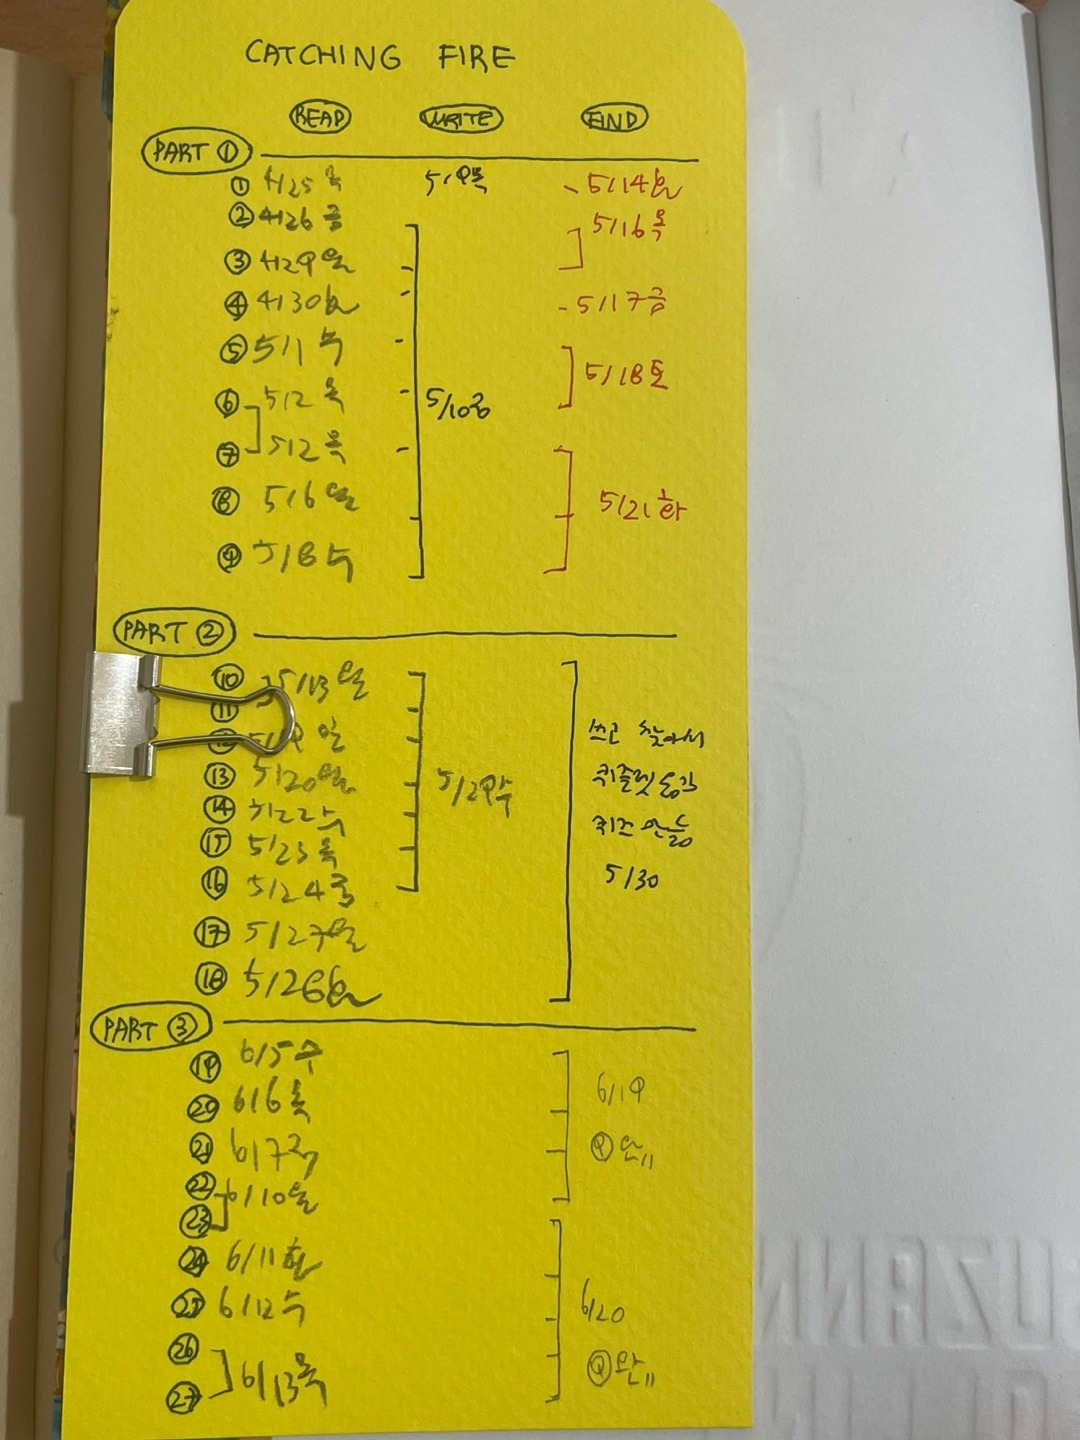 CATCHING FIRE
READ WRITE FIND
PART ①
① 4/25 목 5/9목 5/14화
② 4/26 금 5/16 목
③ 4/29 월
④ 4/30화 5/17금
⑤ 5/1 수
5/18토
⑥ 5/2 목 5/10금
⑦ 5/2 목
⑧ 5/6 월 5/21화
⑨ 5/8 수
PART ②
⑩ 5/13 월
⑪
쓰고 찾아서
일
⑬ 5/20월 5/29수 퀴즐렛 등록
⑭ 5/22수 퀴즈 만듦
⑮ 5/23 목
⑯ 5/24금 5/30
⑰ 5/27월
⑱ 5/28화
PART ③
⑲ 6/5 수
⑳ 6/6 목 6/19
㉑ 6/7금 Ⓠ 완〃
㉒ 6/10월
㉓
㉔ 6/11 화
㉕ 6/12수 6/20
㉖
㉗ 6/13목 Ⓠ완〃